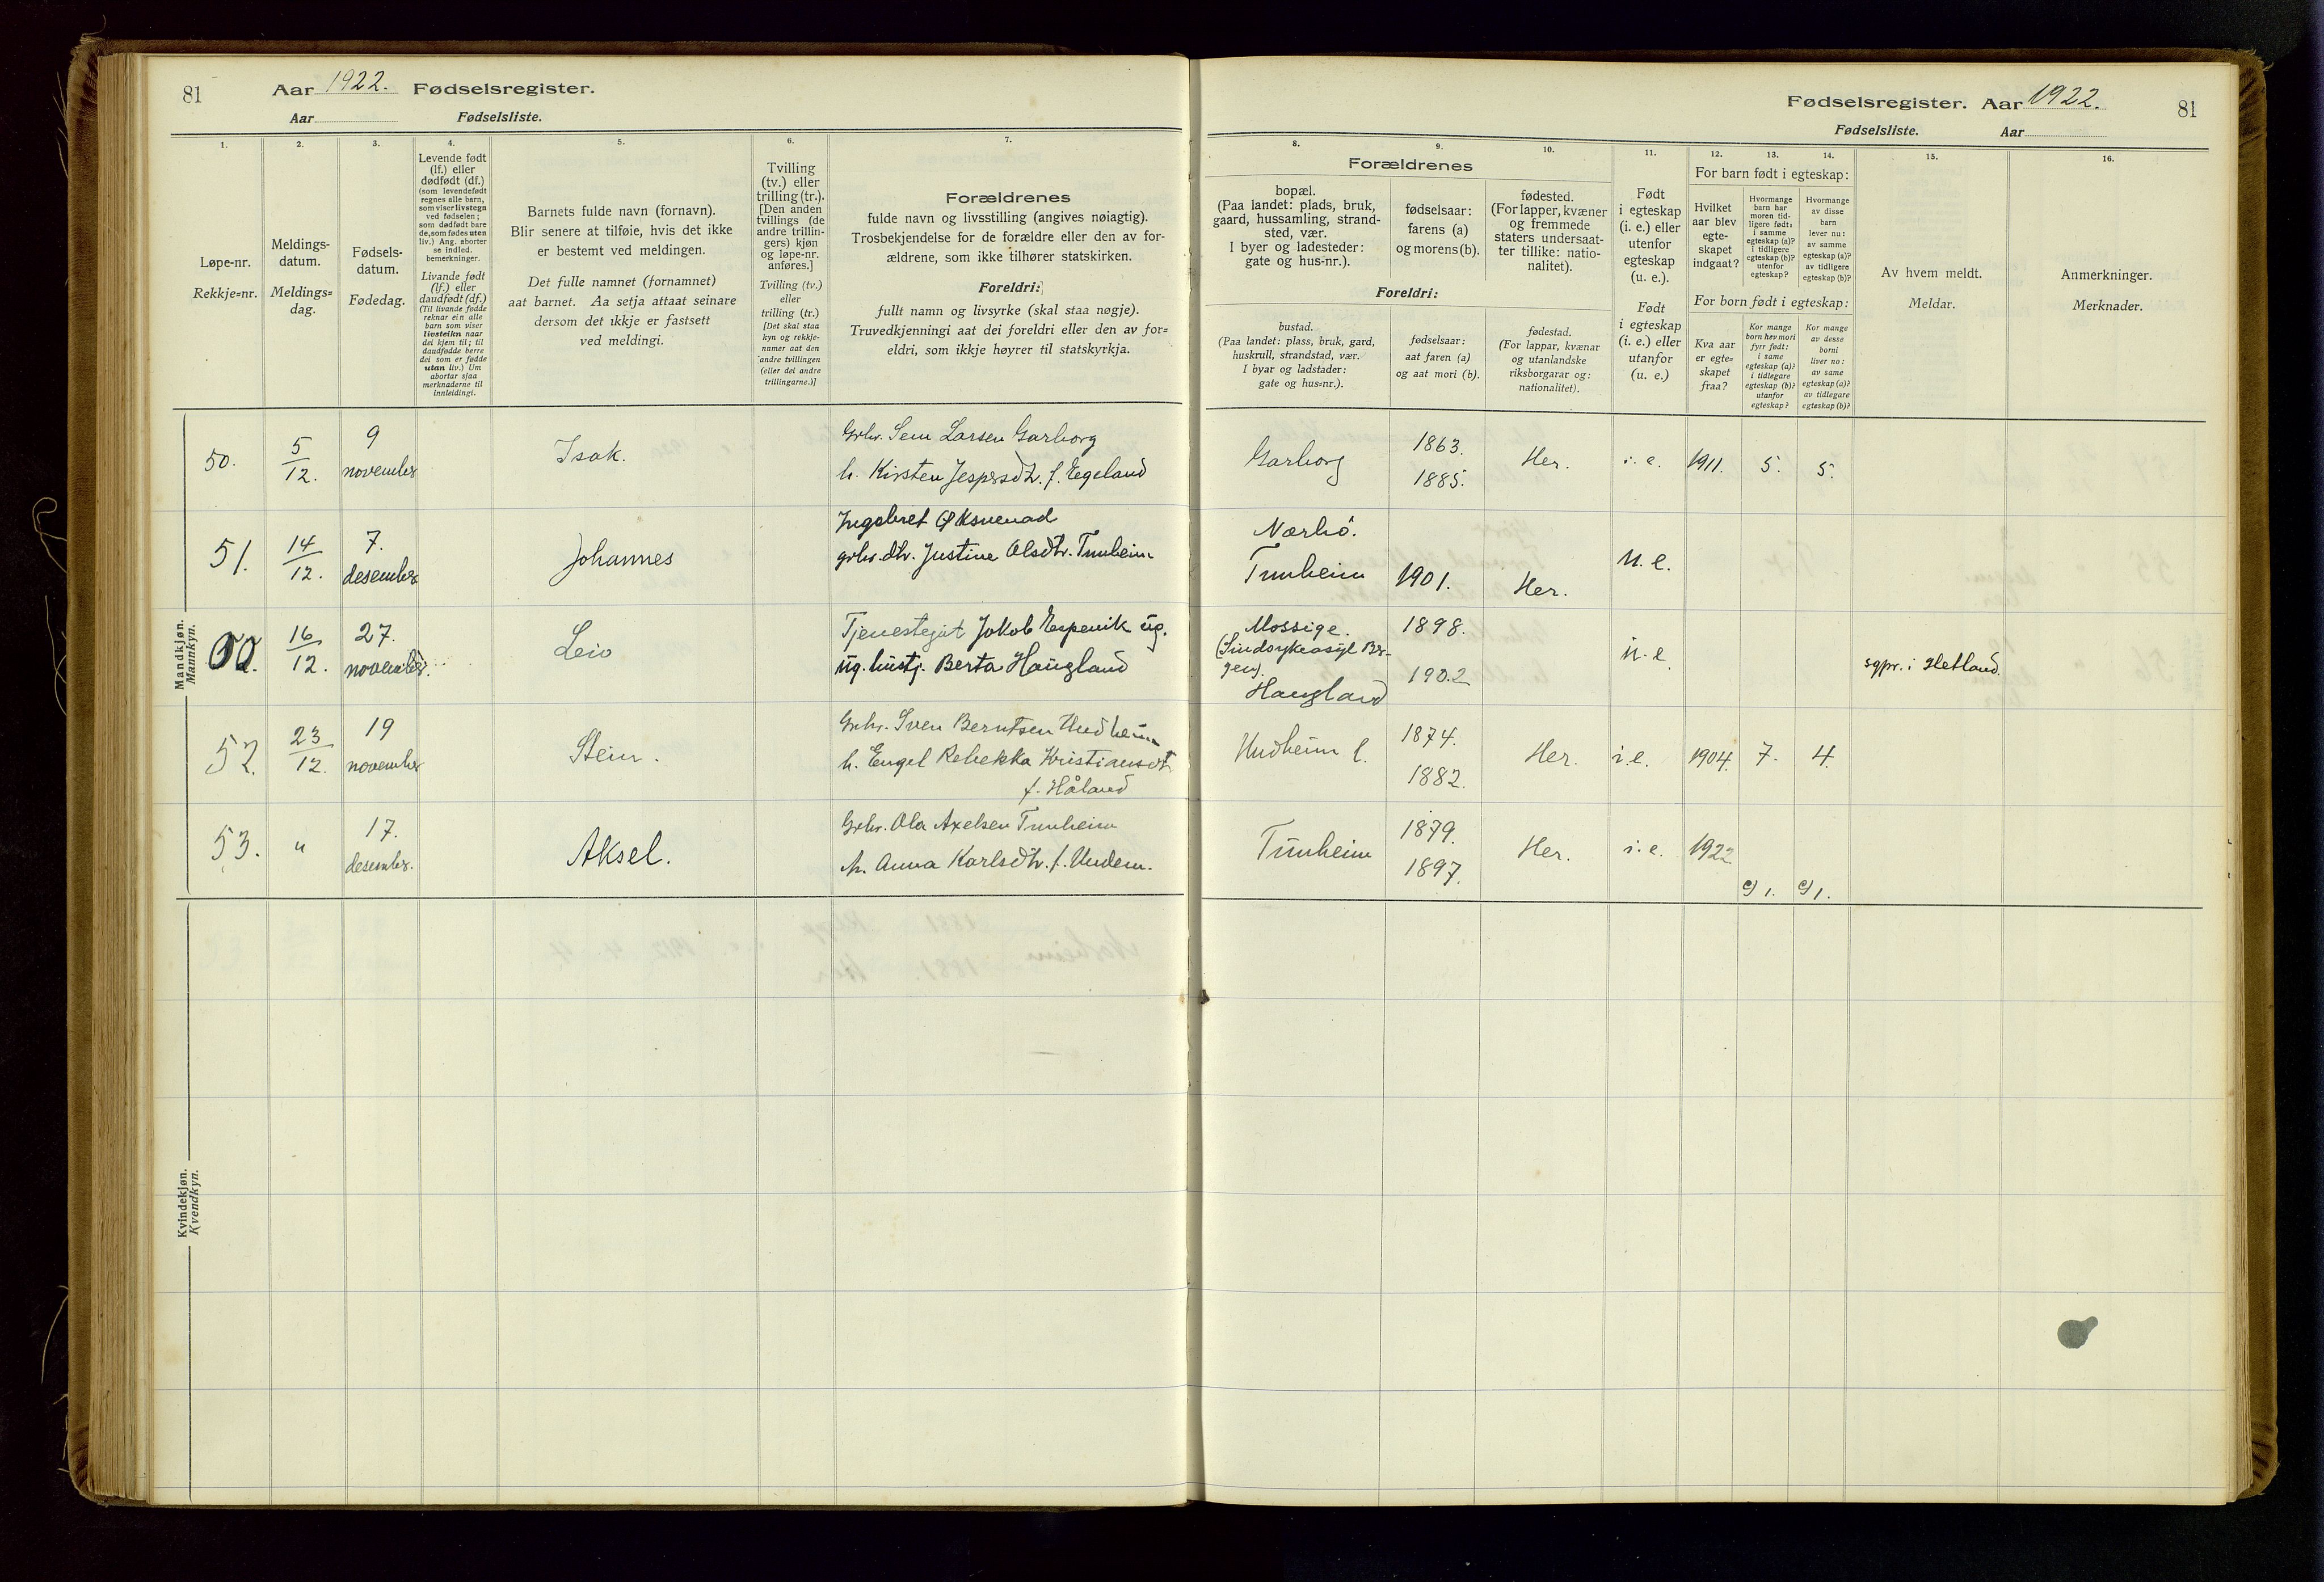 81
Aar 1922. Fødselsregister.
Aar Fødselsliste.
1.
Løpe-nr.
Rekkje=nr.
2.
Meldings-
datum.
Meldings=
dag.
3.
Fødsels-
datum.
Fødedag.
4.
Levende født
(lf.) eller
dødfødt (df.)
(som levendefødt
regnes alle barn,
som viser livstegn
ved fødselen;
som dødfødt bare
de, som fødes uten
liv.) Ang. aborter
se indled.
bemerkninger.
Livande født
(lf.) eller
daudfødt (df.)
(Til livande fødde
reknar ein alle
barn som viser
livsteikn naar
dei kjem til; til
daudfødde berre
dei som er fødde
utan liv.) Um
abortar sjaa
merknaderne til
innleidingi.
5.
Barnets fulde navn (fornavn).
Blir senere at tilføie, hvis det ikke
er bestemt ved meldingen.
Det fulle namnet (fornamnet)
aat barnet. Aa setja attaat seinare
dersom det ikkje er fastsett
ved meldingi.
6.
Tvilling
(tv.) eller
trilling (tr.).
[Den anden
tvillings (de
andre trillin-
gers) kjøn
og løpe-nr.
anføres.]
Tvilling (tv.)
eller
trilling (tr.)
[Det skal staa
kyn og rekkje-
numer aat den
andre tvillingen
(eller dei andre
trillingarne.)]
7.
Forældrenes
fulde navn og livsstilling (angives nøiagtig).
Trosbekjendelse for de forældre eller den av for-
ældrene, som ikke tilhører statskirken.
Foreldri:
fullt namn og livsyrke (skal staa nøgje).
Truvedkjenningi aat dei foreldri eller den av for=
eldri, som ikkje høyrer til statskyrkja.
Mandkjøn.
Mannkyn.
50. 5/12. 9 november Isak. Grbr. Sem Larsen Garborg
h. Kirsten Jespersdt. f. Egeland
51. 14/12. 7. desember Johannes Ingebret Øksnevad
grbr. dtr. Justine Olsdtr. Tunheim
16/12. 27. november. Leiv Tjenestegut Jakob Espevik ug.
ug. hustj. Berta Haugland
52. 23/12. 19 november Stein. Grbr. Sven Berntsen Undheim
h. Engel Rebekka Kristiansdt
f. Håland
53. " 17. desember. Aksel. Grbr. Ola Axelsen Tunheim
h. Anna Karlsdtr. f. Undem.
Kvindekjøn.
Kvendkyn.
Fødselsregister. Aar 1922.
81
Fødselsliste. Aar
8.
Forældrenes
bopæl.
(Paa landet: plads, bruk,
gaard, hussamling, strand-
sted, vær.
I byer og ladesteder:
gate og hus-nr.).
Foreldri:
bustad.
(Paa landet: plass, bruk, gard,
huskrull, strandstad, vær.
I byar og ladstader:
gate og hus=nr.).
9.
fødselsaar:
farens (a)
og morens (b).
fødselsaar:
aat faren (a)
og aat mori (b).
10.
fødested.
(For lapper, kvæner
og fremmede
staters undersaat-
ter tillike: natio-
nalitet).
fødestad.
(For lappar, kvænar
og utanlandske
riksborgarar og:
nationalitet).
11.
Født
i egteskap
(i. e.) eller
utenfor
egteskap
(u. e.).
Født
i egteskap
(i. e.) eller
utanfor
(u. e.)
12. 13. 14.
For barn født i egteskap:
Hvilket
aar blev
egte-
skapet
indgaat?
Hvormange
barn har
moren tid-
ligere født:
i samme
egteskap (a)?
i tidligere
egteskap (b)?
utenfor
egteskap?
Hvormange
av disse
barn
lever nu:
av samme
egteskap (a)?
av tidligere
egteskap (b)?
For born født i egteskap:
Kva aar
er egte=
skapet
fraa?
Kor mange
born hev mori
fyrr født:
i same
egteskap (a)?
i tidlegare
egteskap (b)?
utanfor
egteskap?
Kor mange
av desse
borni
liver no:
av same
egteskap (a)?
av tidlegare
egteskap (b)?
15.
Av hvem meldt.
Meldar.
16.
Anmerkninger.
Merknader.
Garborg 1863. 1885. Her. i. e. 1911. 5. 5.
Nærbö.
Tunheim 1901. Her. u. e.
Mossige. 1898.
(Sindsykeasyl Ber-
gen).
Haugland 1902 u. e. sgpr. i Hetland.
Undheim l. 1874. 1882. Her. i. e. 1904. 7. 4.
Tunheim 1879. 1897. Her. i. e. 1922. c) 1. c) 1.